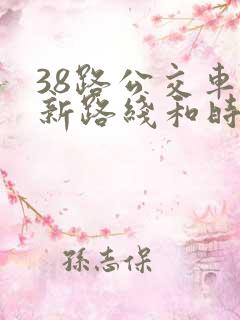 38路公交車
新路綫和時
孫志保